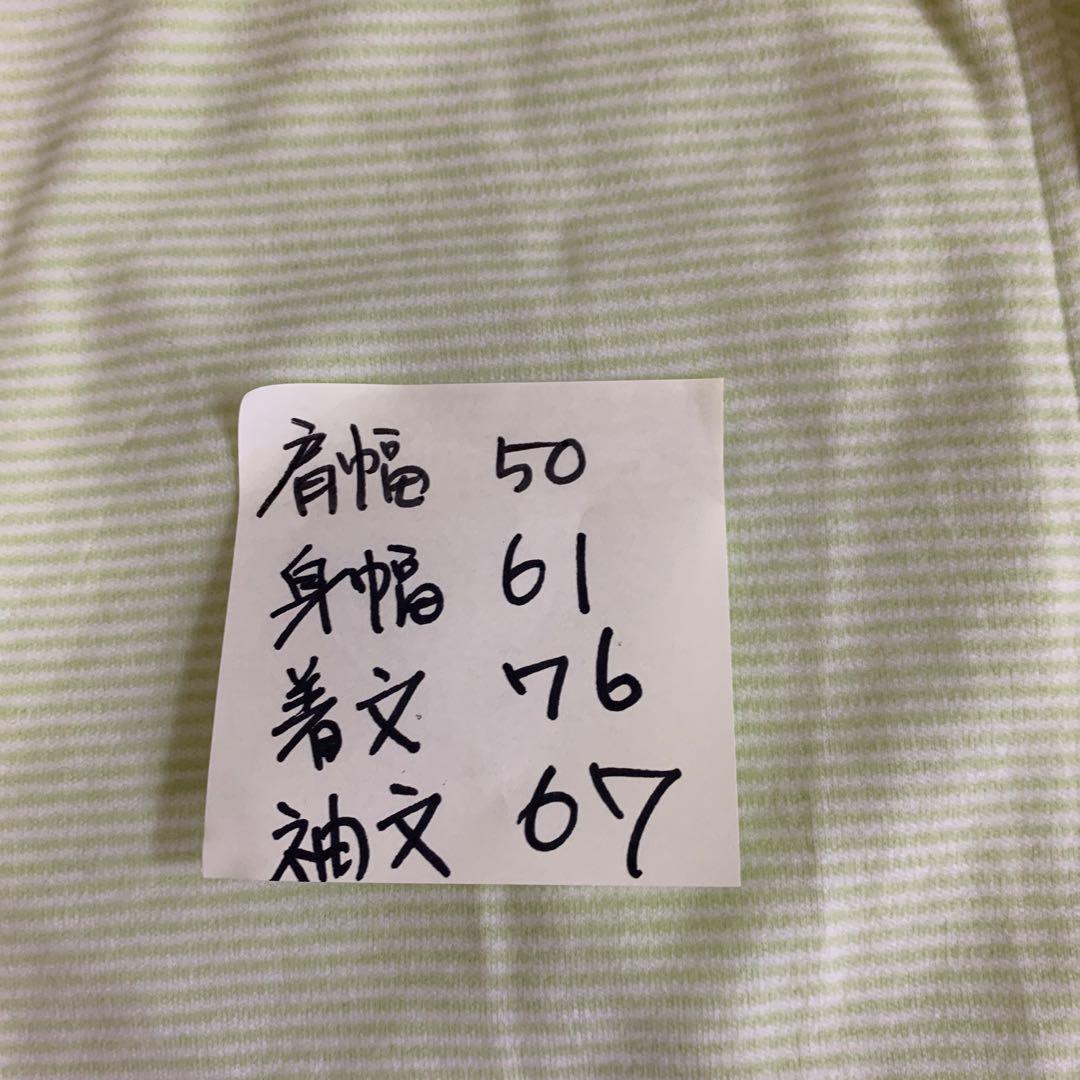 肩幅 50
身幅 61
着文 76
袖文 67